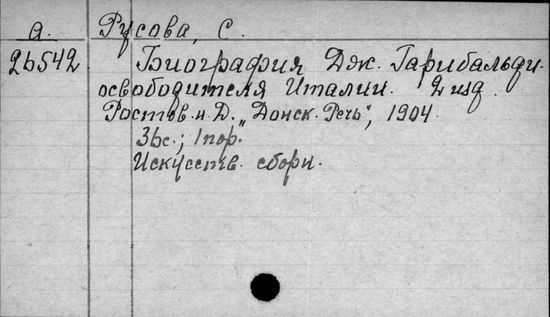 а. Русова, С.
26542 Биография Дж. Гарибальди
освободителя Италии. 2 изд.
Ростов н. Д. „Донск. Речь", 1904.
36с.; 1 пор.
Искусств. сборн.